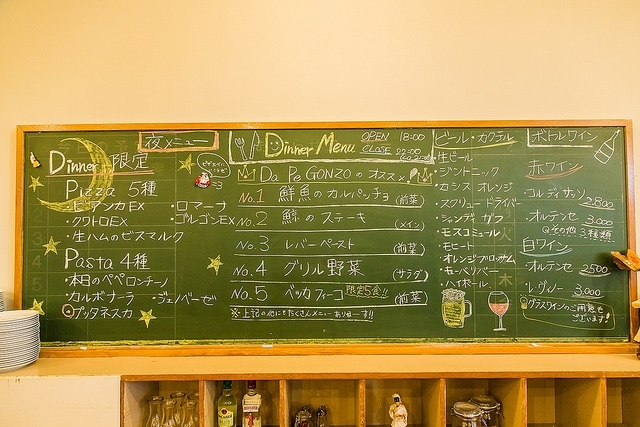 夜メニュー
Dinner 限定
Pizza 5種
・ビアンカEX ・ロマーナ
・クワトロEX ・ゴルゴンEX
・生ハムのビスマルク
Pasta 4種
・本日のペペロンチーノ
・カルボナーラ ・ジェノベーゼ
・プッタネスカ
Dinner Menu OPEN 18:00
CLOSE 22:00
Da Pe GONZOのオススメ!
No.1 鮮魚のカルパッチョ (前菜)
No.2 鮪のステーキ (メイン)
No.3 レバーペースト (前菜)
No.4 グリル野菜 (サラダ)
No.5 ベッカフィーコ 限定5食!! (前菜)
※上記の他にもたくさんメニューあります!!
ビール・カクテル
・生ビール
・ジントニック
・カシスオレンジ
・スクリュードライバー
・シャンディガフ
・モスコミュール
・モヒート
・オレンジブロッサム
・ハイボール
ボトルワイン
赤ワイン
・コルディサッソ
2,800
・オルテンセ 3,000
その他3種類
白ワイン
・オルテンセ 2500
・レヴィノー 3,000
グラスワインのご用意も
ございます!